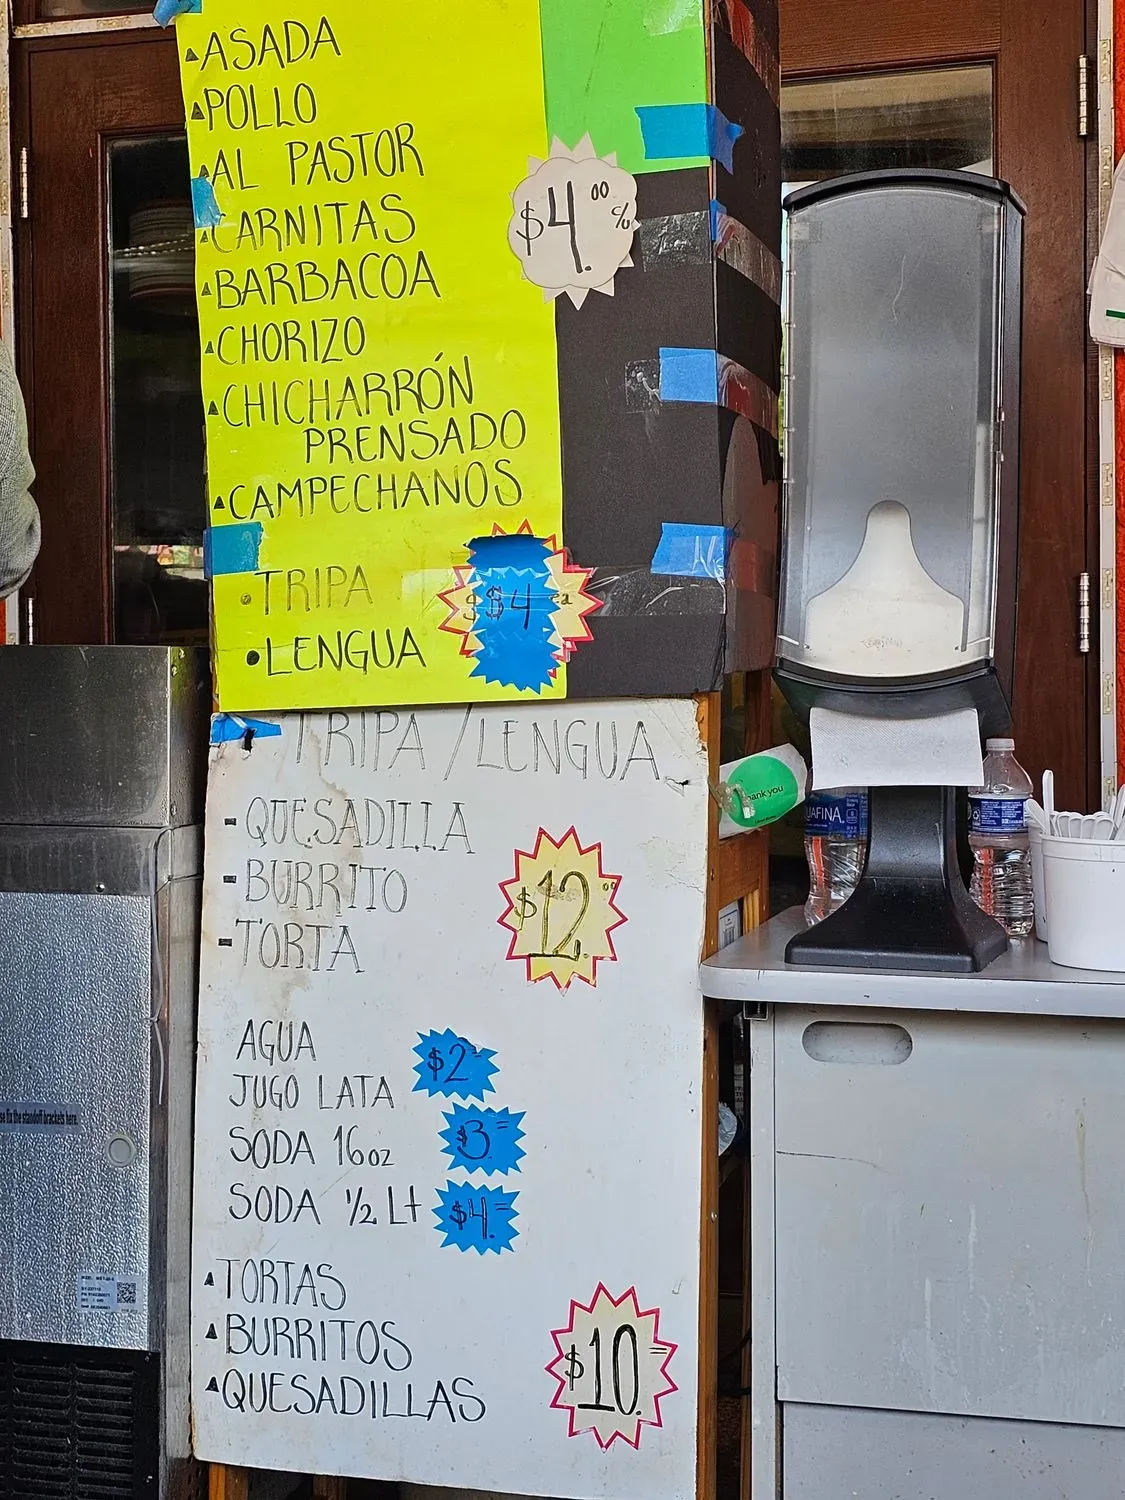 ASADA
POLLO
AL PASTOR
CARNITAS
BARBACOA
CHORIZO
CHICHARRÓN
PRENSADO
CAMPECHANOS
$4.00 c/u
TRIPA
LENGUA
$4
TRIPA/LENGUA
QUESADILLA
BURRITO
TORTA
$12.00
AGUA
JUGO LATA
$2
SODA 16oz
$3
SODA 1/2 Lt
$4
TORTAS
BURRITOS
QUESADILLAS
$10
thank you
AQUAFINA
se fix the standoff brackets here.